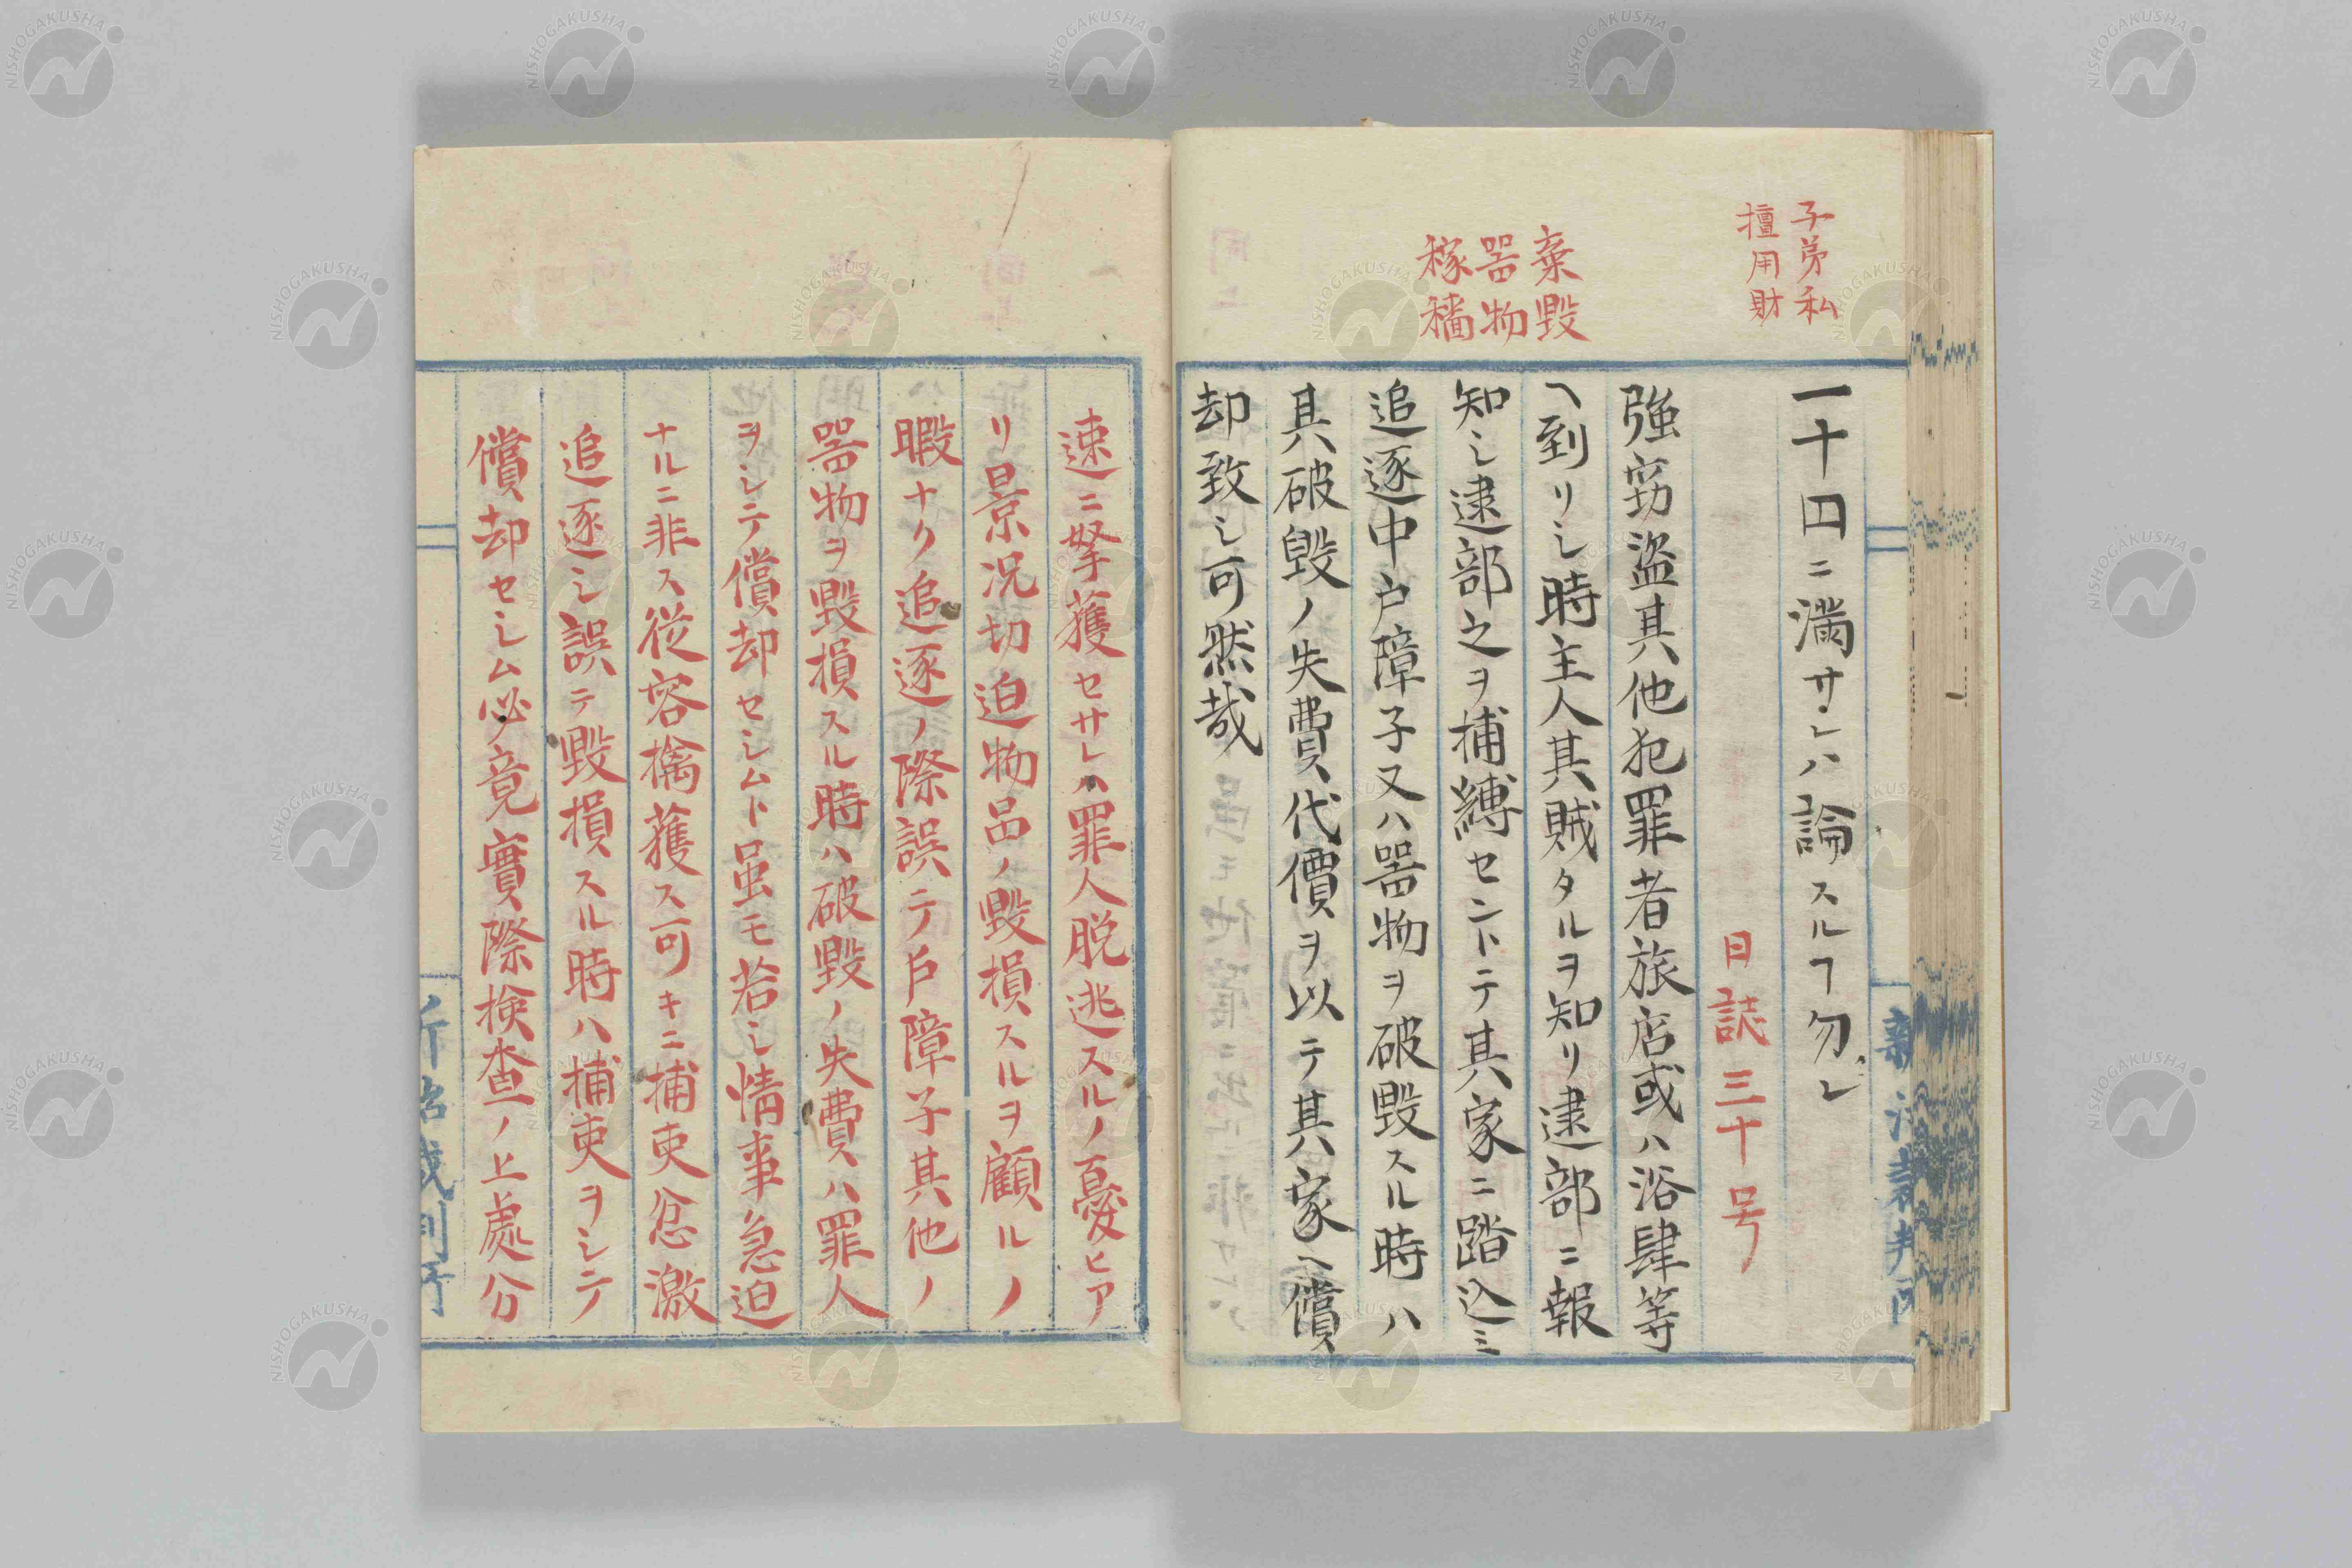 子弟私
擅用財
一十円ニ満サレハ論スルヿ勿レ
日誌三十号
棄毀
器物
稼穡
強窃盗其他犯罪者旅店或ハ浴肆等
ヘ到リシ時主人其賊タルヲ知リ逮部ニ報
知シ逮部之ヲ捕縛セントテ其家ニ踏込ミ
追逐中戸障子又ハ器物ヲ破毀スル時ハ
其破毀ノ失費代價ヲ以テ其家ヘ償
却致シ可然哉
速ニ拏獲セサレハ罪人脱逃スルノ憂ヒア
リ景況切迫物品ノ毀損スルヲ顧ルノ
暇ナク追逐ノ際誤テ戸障子其他ノ
器物ヲ毀損スル時ハ破毀ノ失費ハ罪人
ヲシテ償却セシムト虽モ若シ情事急迫
ナルニ非ス従容擒獲ス可キニ捕吏忿激
追逐シ誤テ毀損スル時ハ捕吏ヲシテ
償却セシム必竟實際検査ノ上處分
NISHOGAKUSHA